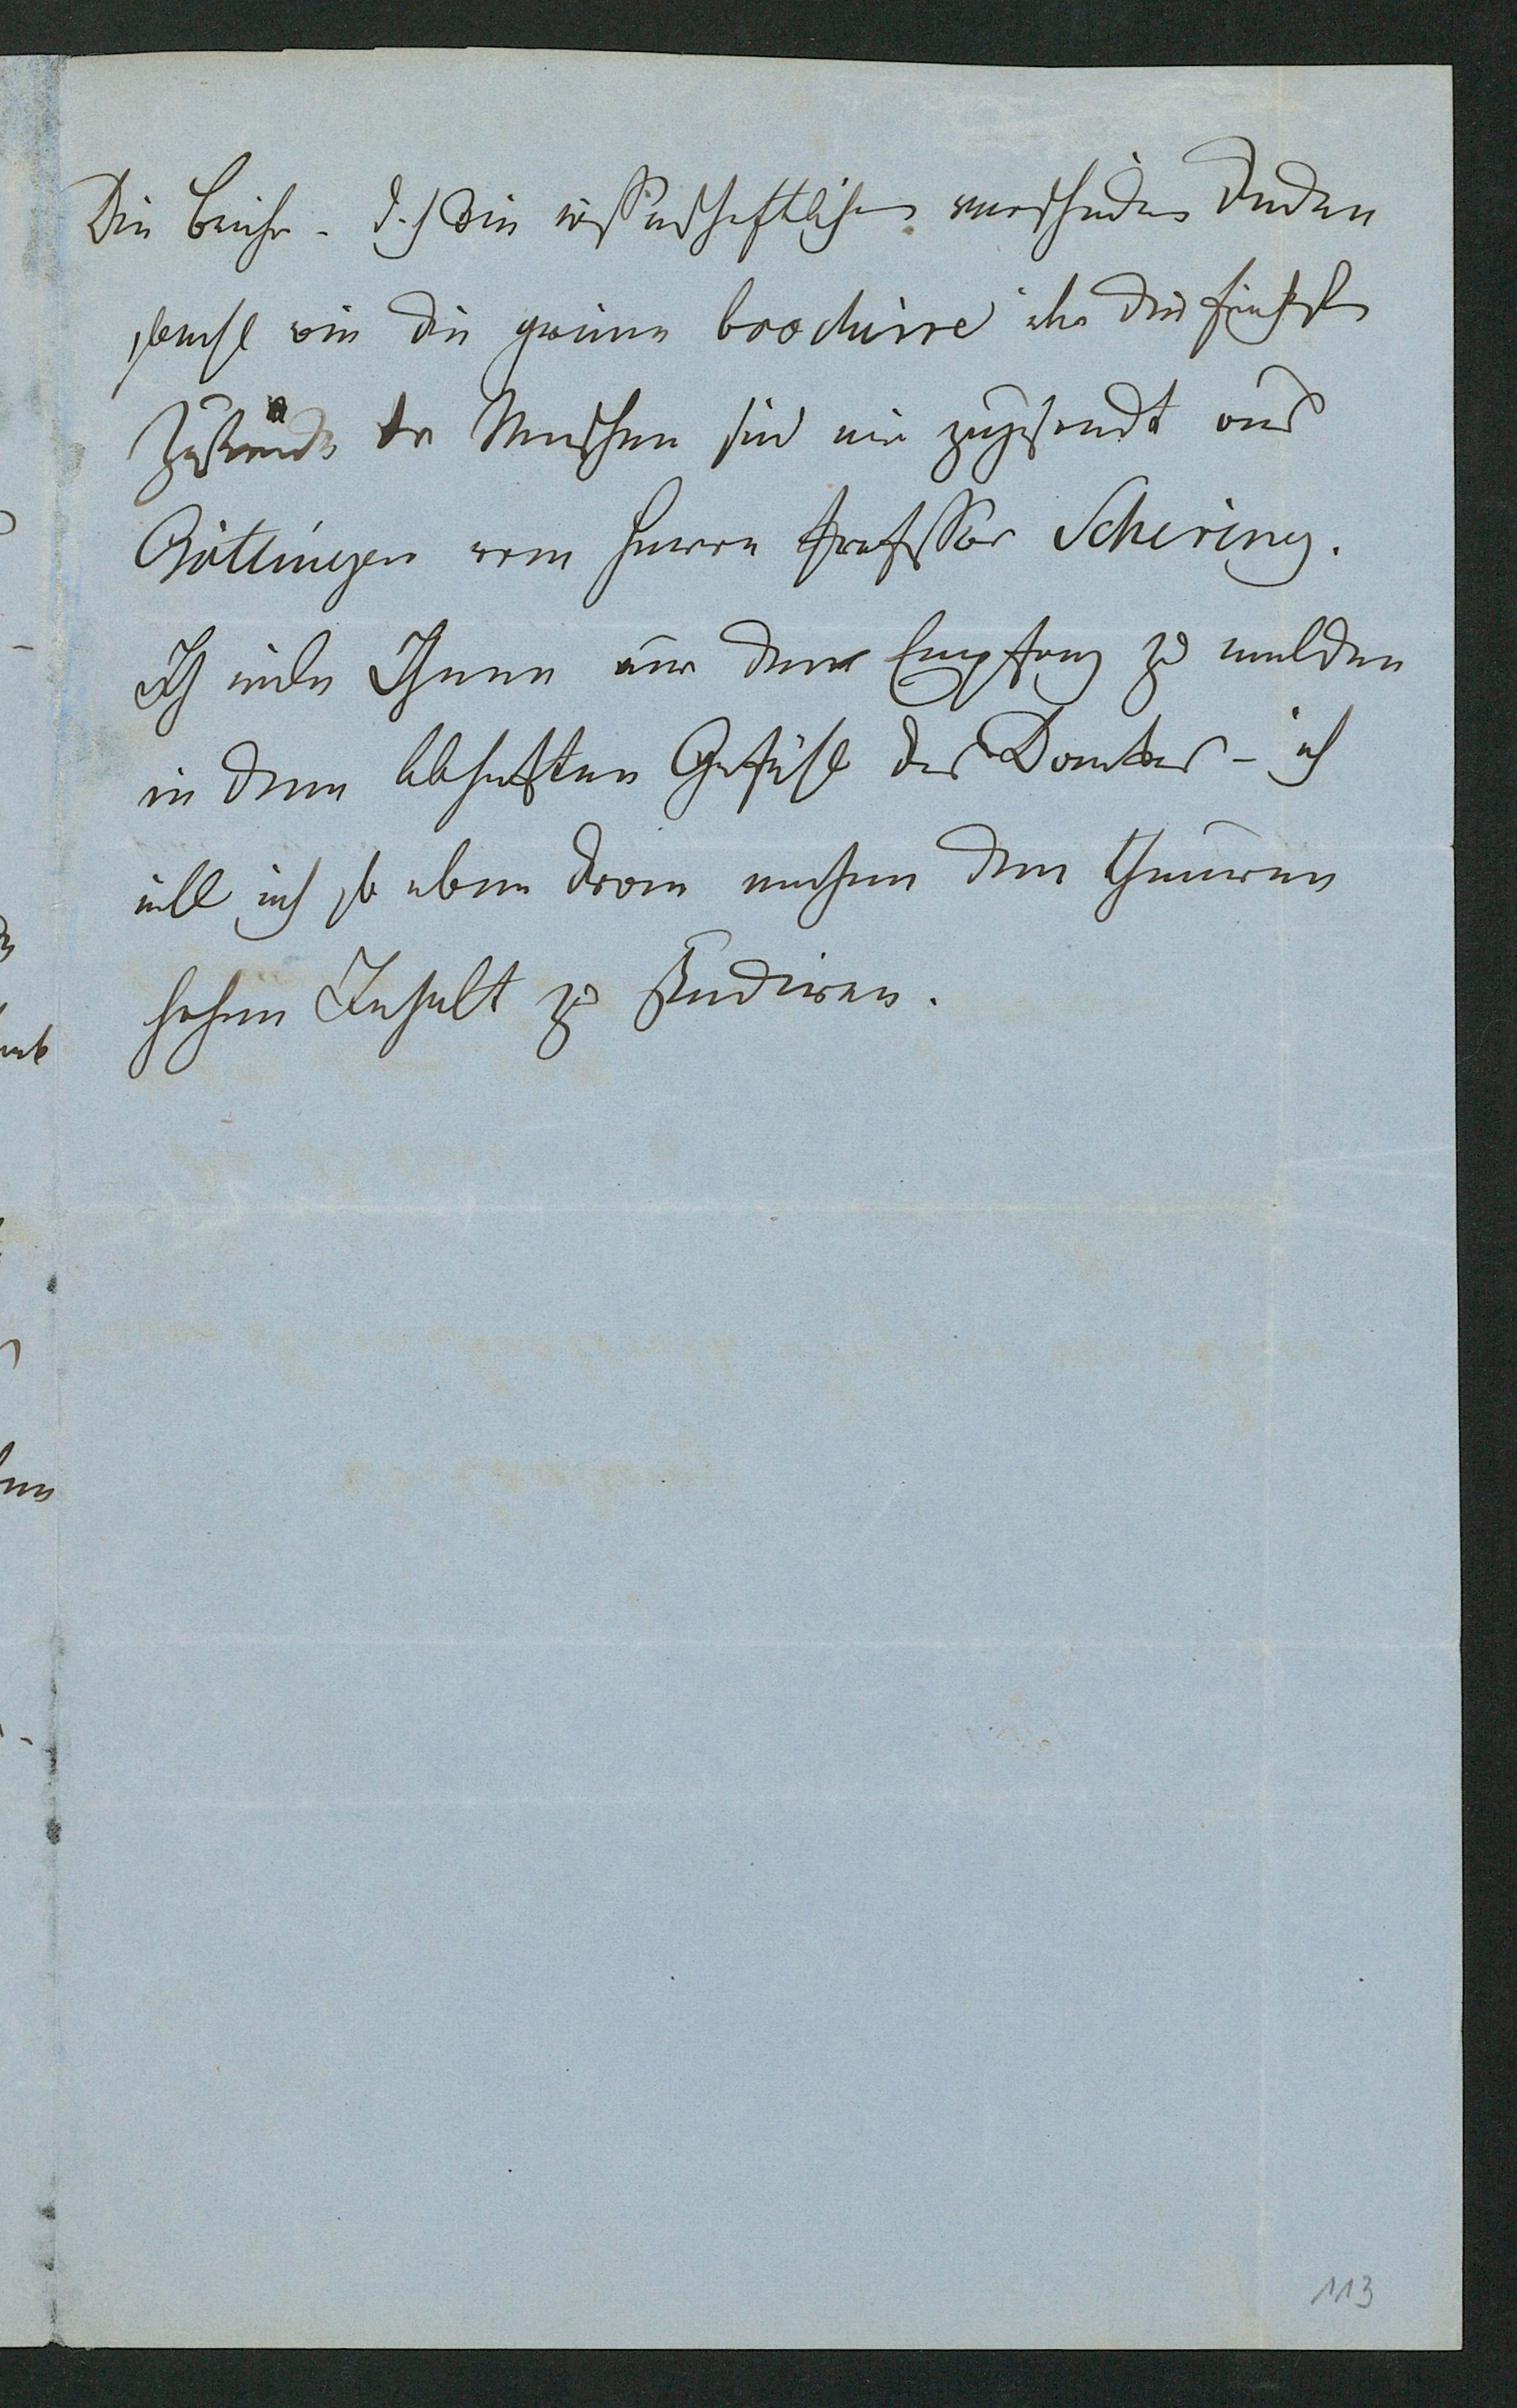 Die Bücher - d. h die wissenschaftlichen
sowohl wie die grüne brochüre über die früheste
Zustände der Menschen sind mir zugesandt aus
Göttingen vom Herrn Professor Schering.
Ich eile Ihnen nur den Empfang zu melden
in dem lebhaften Gefühl des Dankes - ich
will mich so eben daran machen den theuren
hohen Inhalt zu studiren.
113